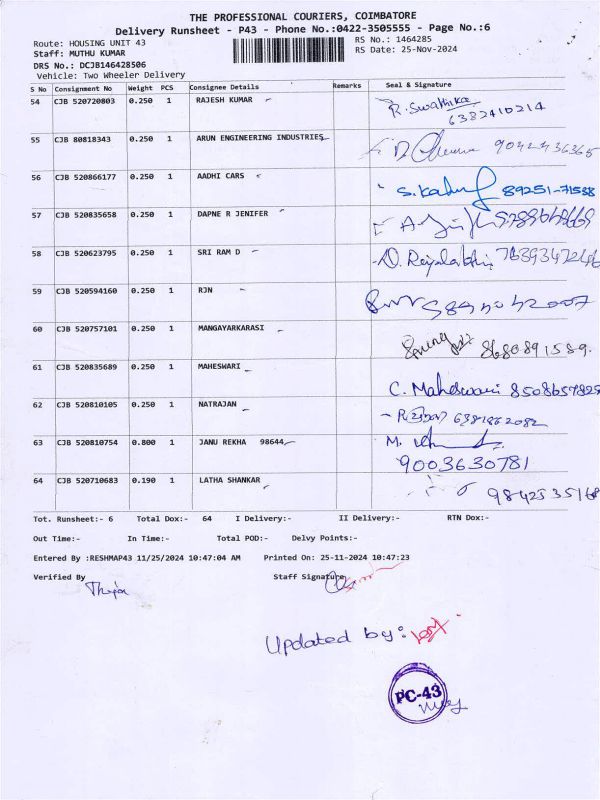 THE PROFESSIONAL COURIERS, COIMBATORE
Delivery Runsheet - P43 - Phone No.:0422-3505555 - Page No.:6
Route: HOUSING UNIT 43 RS No.: 1464285
Staff: MUTHU KUMAR RS Date: 25-Nov-2024
DRS No.: DCJB146428506
Vehicle: Two Wheeler Delivery
S No Consignment No Weight PCS Consignee Details Remarks Seal & Signature
54 CJB 520720803 0.250 1 RAJESH KUMAR R. Swathika
6382410214
55 CJB 80818343 0.250 1 ARUN ENGINEERING INDUSTRIES
56 CJB 520866177 0.250 1 AADHI CARS 89251-71538
57 CJB 520835658 0.250 1 DAPNE R JENIFER
58 CJB 520623795 0.250 1 SRI RAM D
59 CJB 520594160 0.250 1 RJN
60 CJB 520757101 0.250 1 MANGAYARKARASI 8680891589.
61 CJB 520835689 0.250 1 MAHESWARI C. Maheswari 8508657825
62 CJB 520810105 0.250 1 NATRAJAN 6381862082
63 CJB 520810754 0.800 1 JANU REKHA 98644 M.
9003630781
64 CJB 520710683 0.190 1 LATHA SHANKAR 9842535168
Tot. Runsheet:- 6 Total Dox:- 64 I Delivery:- II Delivery:- RTN Dox:-
Out Time:- In Time:- Total POD:- Delvy Points:-
Entered By :RESHMAP43 11/25/2024 10:47:04 AM Printed On: 25-11-2024 10:47:23
Verified By Staff Signature
Updated by:
PC-43